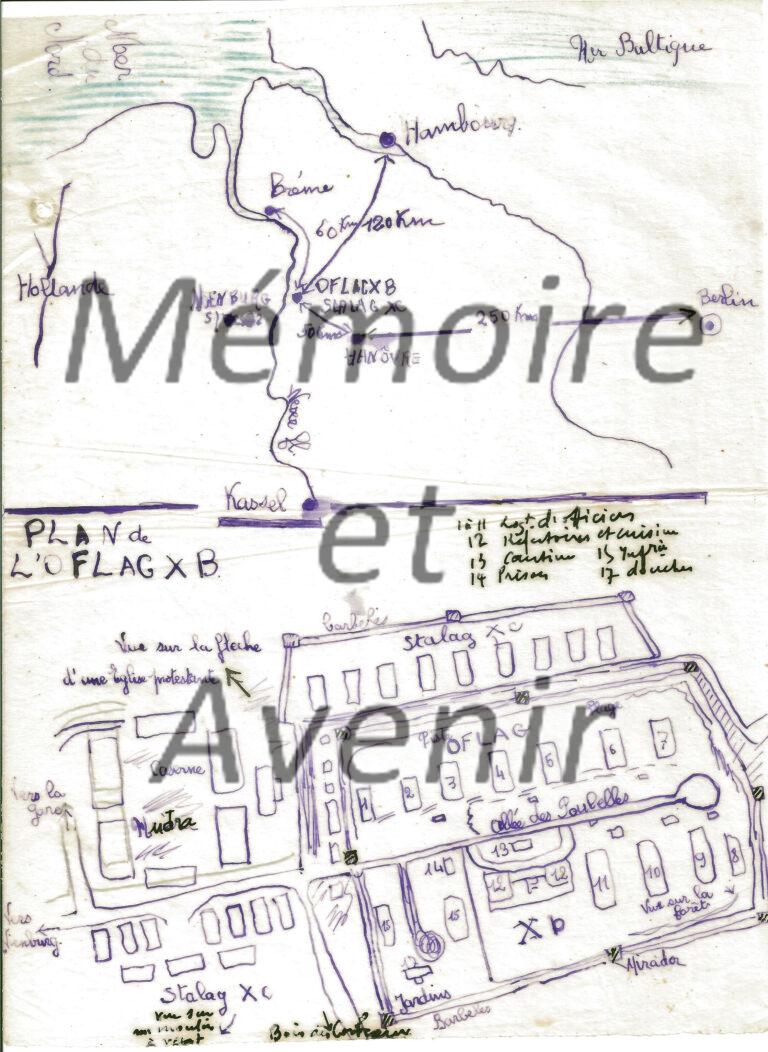 Mer
du
Nord
Mer Baltique
Hambourg.
Brême
60 Km
120 Km
Hollande
OFLAG X B
STALAG X C
NIENBURG
50 kms
HANOVRE
250 Kms
Berlin
Weser
Kassel
Mémoire
et
Avenir
PLAN de
L'OFLAG X B.
1 à 11 Logt d'officiers
12 Réfectoires et cuisine
13 Cantine 15 Infrie
14 Prison 17 douches
Vue sur la flèche
d'une Eglise protestante
Barbelés
Stalag X C
Plage
OFLAG
Caserne
Mudra
Vers la
gare
1
2
3
4
5
6
7
Allée des Poubelles
13
12
12
11
10
9
8
14
15
X B
Vue sur la
forêt
Vers
Nienburg.
Mirador
Jardins
Barbelés
Stalag X C
vue sur
un moulin
à vent
Bois des Corbeaux